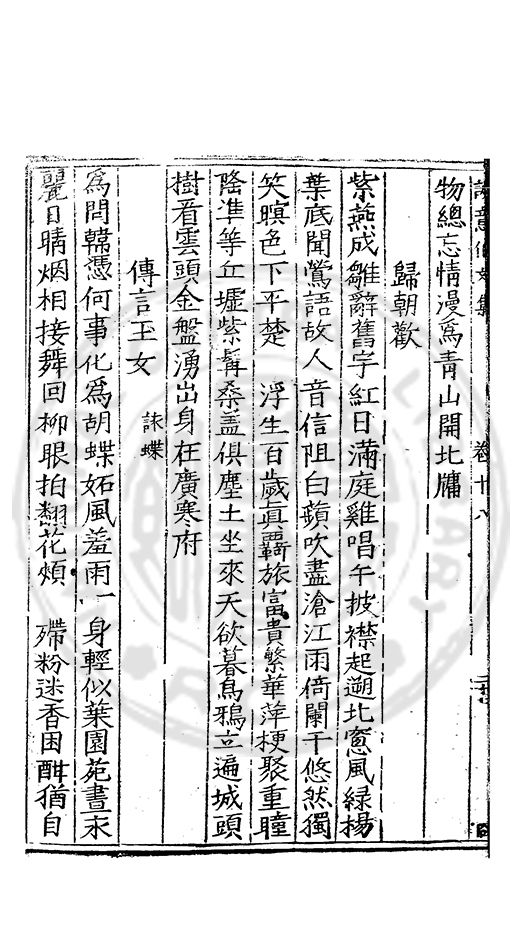 卷十八
物總忘情漫爲青山開北牖
歸朝歡
紫燕成雛辭舊字紅日滿庭雞唱午披襟起遡北窻風緑楊
葉底聞鶯語故人音信阻白蘋吹盡滄江雨倚闌干悠然獨
笑暝色下平楚　浮生百歲眞覊旅富貴繁華萍梗聚重瞳
隆準等丘墟紫髯桑盖俱塵土坐來天欲暮烏鴉立遍城頭
樹看雲頭金盤湧出身在廣寒府
傳言玉女　詠蝶
爲問韓憑何事化爲胡蝶妬風羞雨一　身輕似葉園苑晝永
麗日晴烟相接舞回柳眼拍翻花頰　殢粉迷香困酣猶自